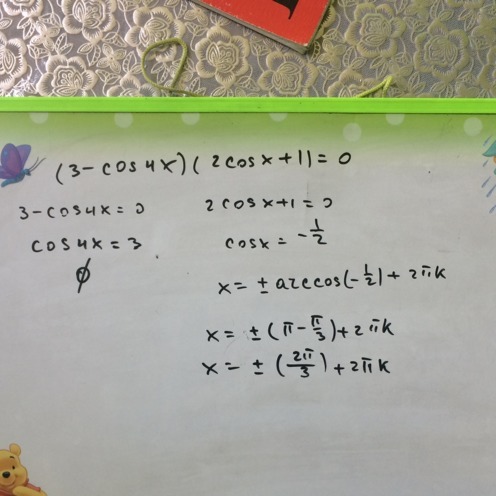 (3-cos4x)(2cosx+1)=0
3-cos4x=0
cos4x=3
∅
2cosx+1=0
cosx=-1/2
x=±arccos(-1/2)+2πk
x=±(π-π/3)+2πk
x=±(2π/3)+2πk